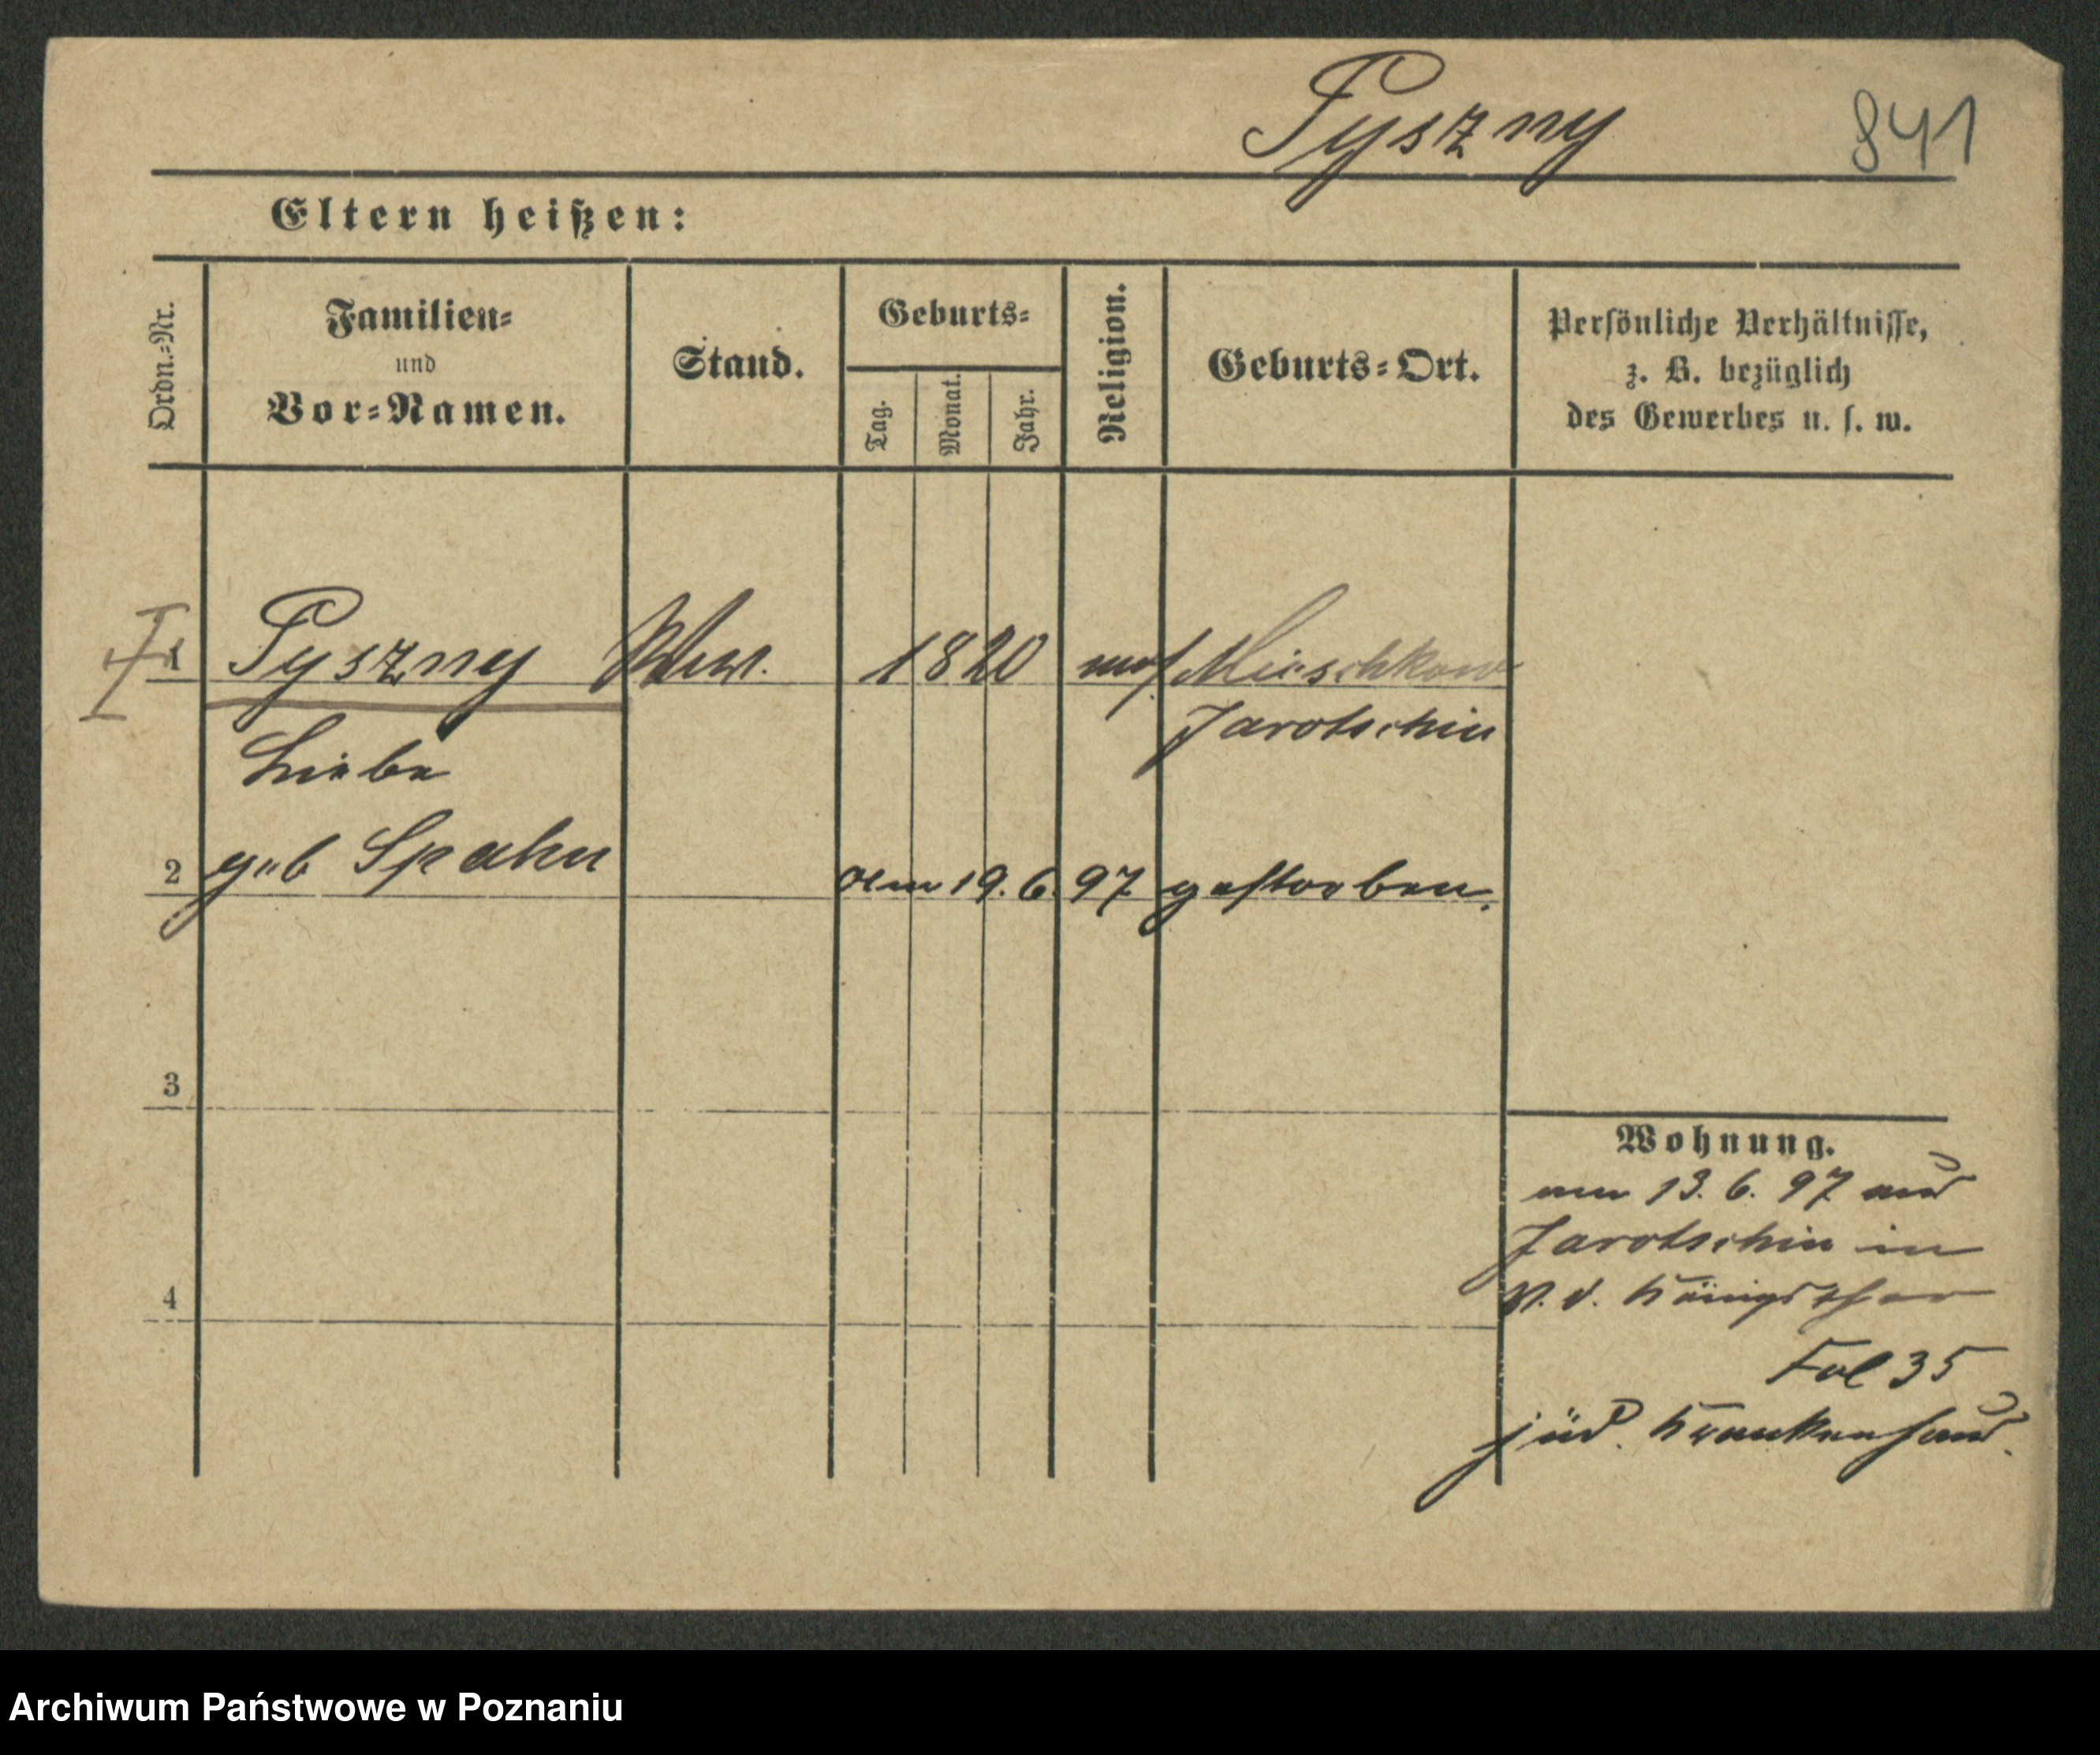 Pyszny 841
Eltern heißen:
Ordn.-Nr.
Familien-
und
Vor-Namen.
Stand.
Geburts-
Tag.
Monat.
Jahr.
Religion.
Geburts-Ort.
Persönliche Verhältnisse,
z. B. bezüglich
des Gewerbes u. s. w.
I 1 Pyszny Wwe. 1820 mos Mieschkow
Jarotschin
Liebe
2 geb Spahn am 19. 6. 97 gestorben.
3
4
Wohnung.
am 13. 6. 97 aus
Jarotschin in
V. d. Königsthor
Fol 35
jüd. Krankenhaus.
Archiwum Państwowe w Poznaniu